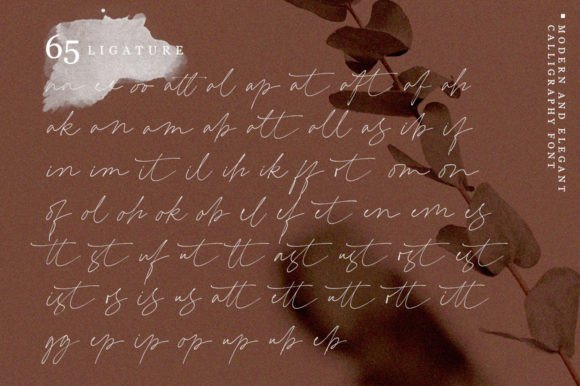 65 LIGATURE
aa ee oo att al ap at aft af ah
ak an am ab ott all as ib if
in im it il ih ik ff rt om on
of ol oh ok ob el ef et en em es
tt st uf ut lt ast ust ost est
ist os is us att ett utt ott itt
gg ep ip op up ub eb
MODERN AND ELEGANT
CALLIGRAPHY FONT